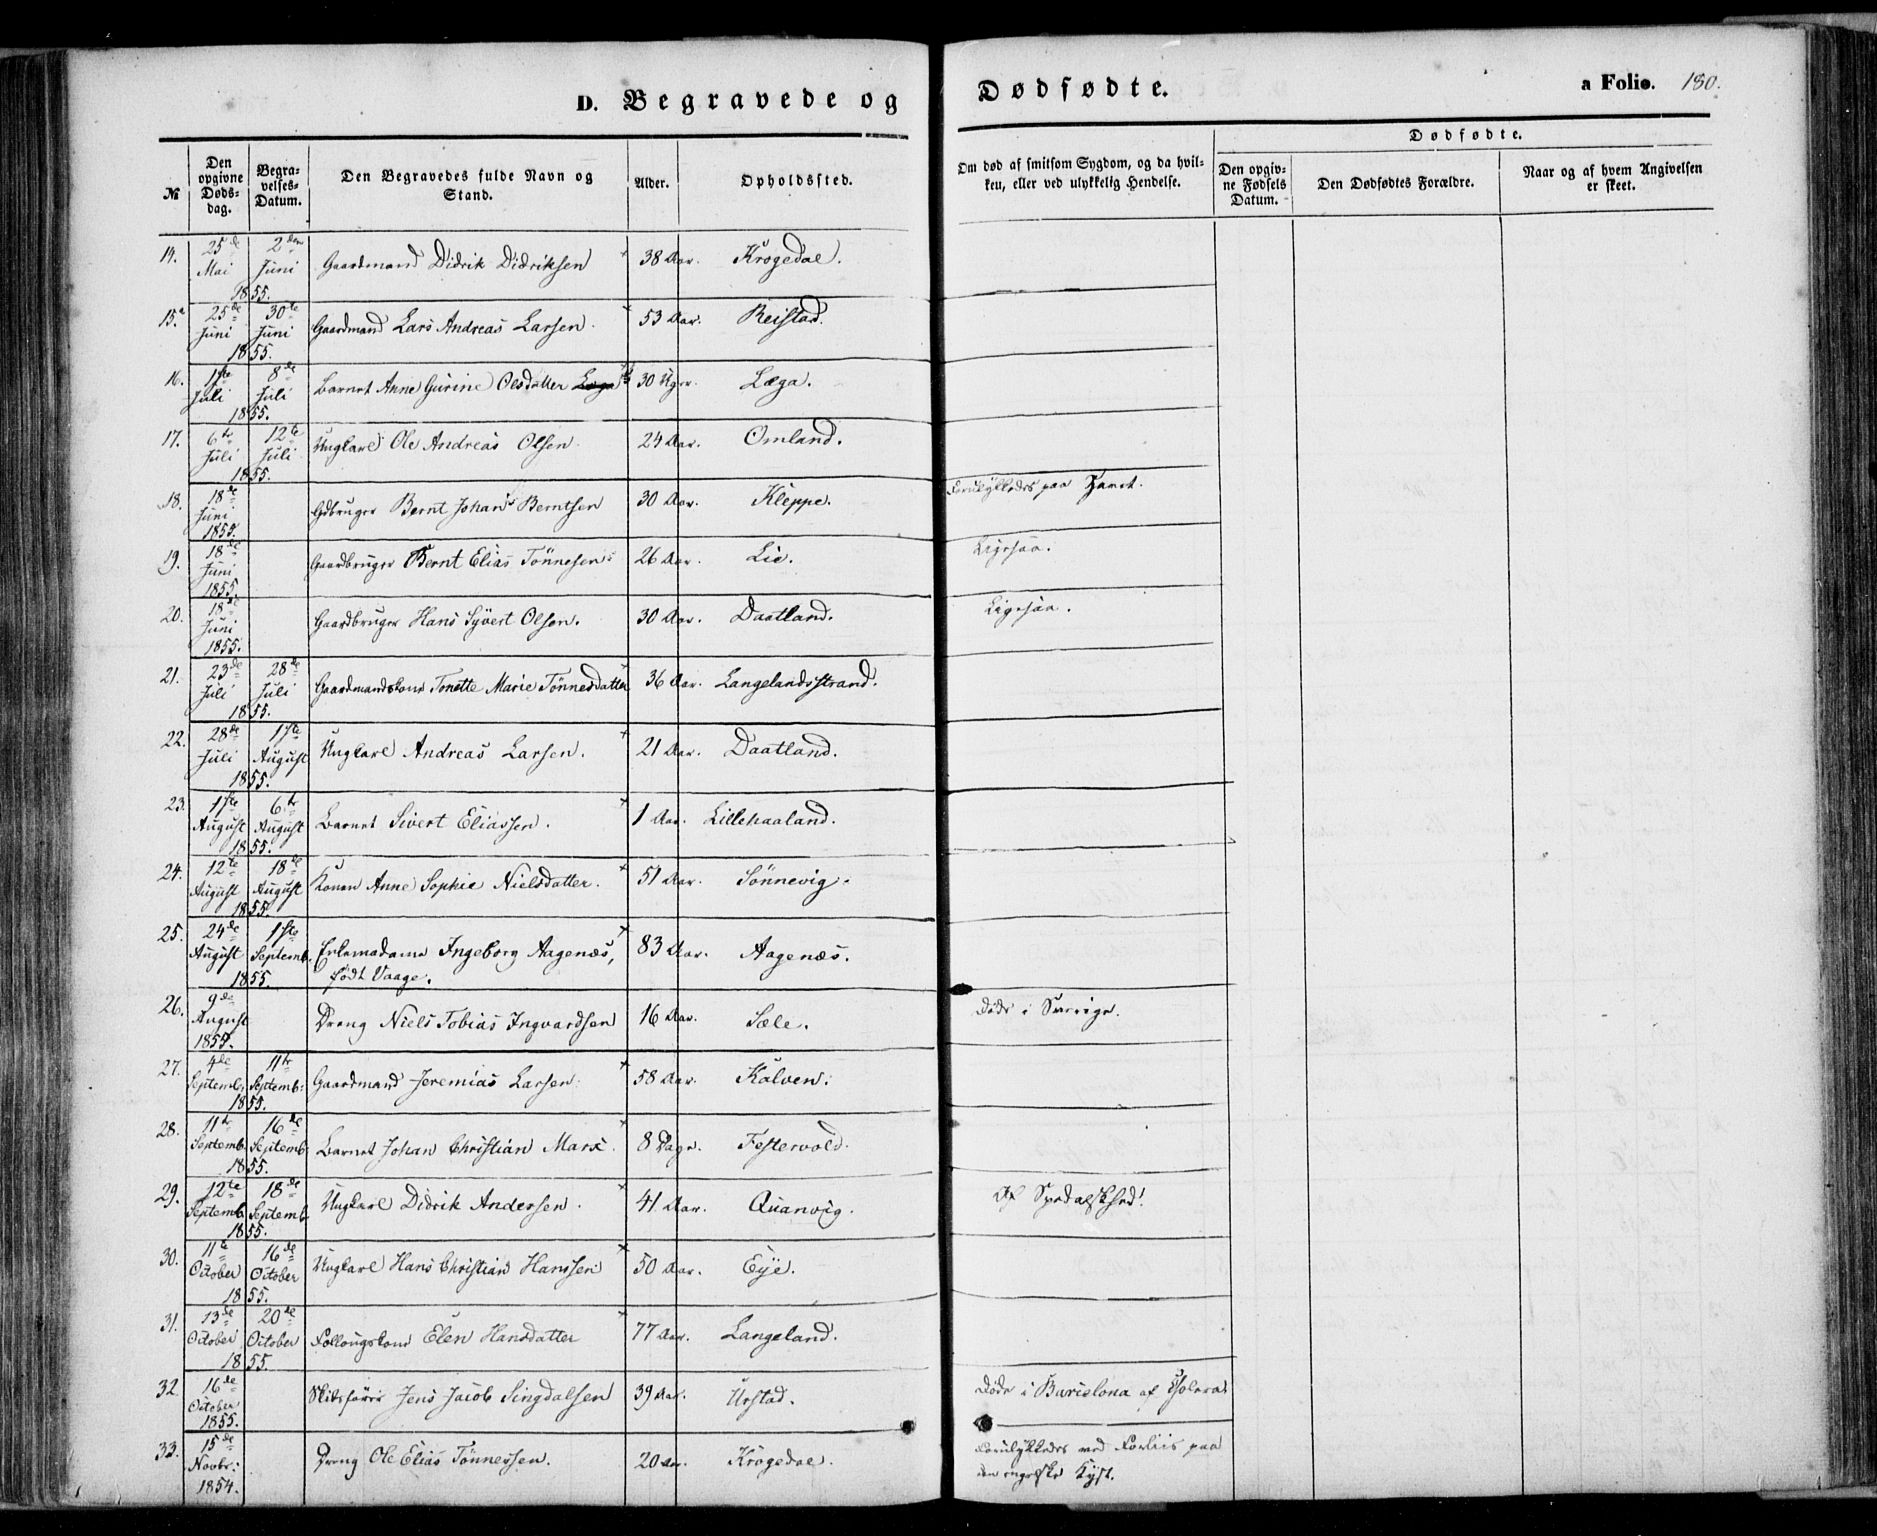 D. Begravede og Dødfødte. a Folio. 180.
№ Den opgivne Døds-dag. Begra-velses-Datum. Den Begravedes fulde Navn og Stand. Alder. Opholdssted. Om død af smitsom Sygdom, og da hvil-ken, eller ved ulykkelig Hendelse. Dødfødte. Den opgiv-ne Fødsels Datum. Den Dødfødtes Forældre. Naar og af hvem Angivelsen er skeet.
14. 25de Mai 2den Juni 1855. Gaardmand Didrik Didriksen 38 Aar. Krogedal.
15. 25de Juni 30te Juni 1855. Gaardmand Lars Andreas Larsen. 53 Aar. Reistad.
16. 1ste Juli 8de Juli 1855. Barnet Anne Gurine Olsdatter 30 Uger. Læga.
17. 6te Juli 12te Juli 1855. Ungkarl Ole Andreas Olsen. 24 Aar. Omland.
18. 18de Juni 1855. Gdbruger Bernt Johan Berntsen 30 Aar. Kleppe. Forulykkedes paa Havet.
19. 18de Juni 1855. Gaardbruger Bernt Elias Tönnesen 26 Aar. Lie. Ligesaa.
20. 18de Juni 1855. Gaardbruger Hans Syvert Olsen. 30 Aar. Daatland. Ligesaa.
21. 23de Juli 28de Juli 1855. Gaardmandskone Tonette Marie Tönnesdatter 36 Aar. Langelandsstrand.
22. 28de Juli 1ste August 1855. Ungkarl Andreas Larsen. 21 Aar. Daatland.
23. 1ste August 6te August 1855. Barnet Sivert Eliassen. 1 Aar. Lillehaaland.
24. 12te August 18de August 1855. Konen Anne Sophie Nielsdatter. 51 Aar. Sönnevig.
25. 24de August 1ste Septemb. 1855. Enkemadame Ingeborg Aagenæs, født Vaage. 83 Aar. Aagenæs.
26. 9de August 1855. Dreng Niels Tobias Ingvardsen 16 Aar. Sæle. Døde i Sverige.
27. 4de Septemb. 11te Septemb: 1855. Gaardmand Jeremias Larsen. 58 Aar. Kalven.
28. 11te Septemb. 16de Septemb. 1855. Barnet Johan Christian Marx. 8 Dage. Festervold.
29. 12te Septemb. 18de Septemb. 1855. Ungkarl Didrik Andersen. 41 Aar. Quanvig. Af Spedalskhed!
30. 11te October 16de October 1855. Ungkarl Hans Christian Hanssen 50 Aar. Eye.
31. 13de October 20de October 1855. Follougskone Elen Hansdatter 77 Aar. Langeland.
32. 16de October 1855. Skibsfører Jens Jacob Singdalsen 39 Aar. Urstad. Døde i Barcelona af Cholera.
33. 15de Novbr: 1854. Dreng Ole Elias Tönnessen. 20 Aar. Krogedal. Forulykkedes ved Forliis paa den engelske Kyst.